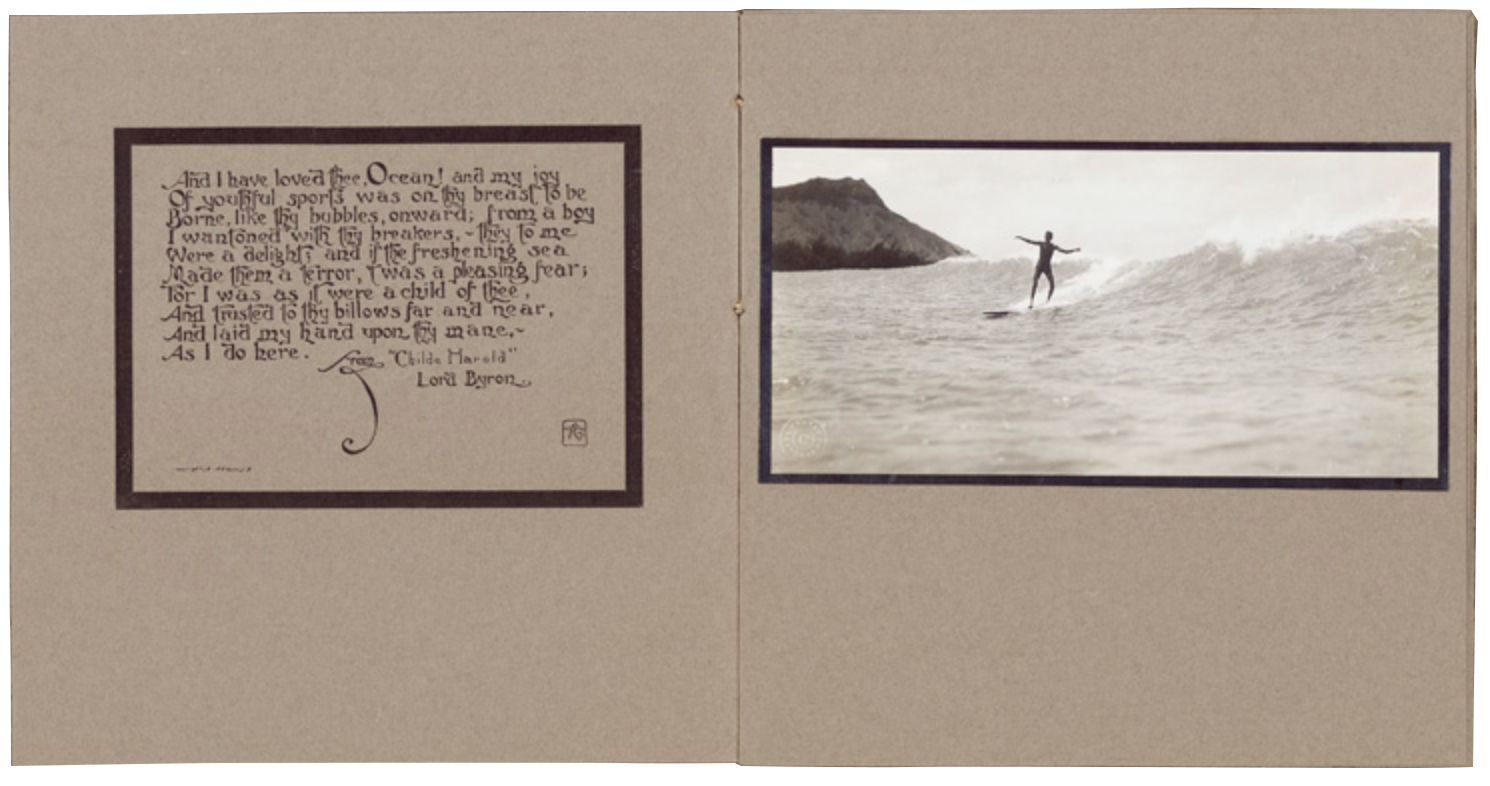 And I have loved thee, Ocean! and my joy
Of youthful sports was on thy breast to be
Borne, like thy bubbles, onward; from a boy
I wantoned with thy breakers, - they to me
Were a delight; and if the freshening sea
Made them a terror, t'was a pleasing fear;
For I was as it were a child of thee,
And trusted to thy billows far and near,
And laid my hand upon thy mane, -
As I do here.
From "Childe Harold"
Lord Byron